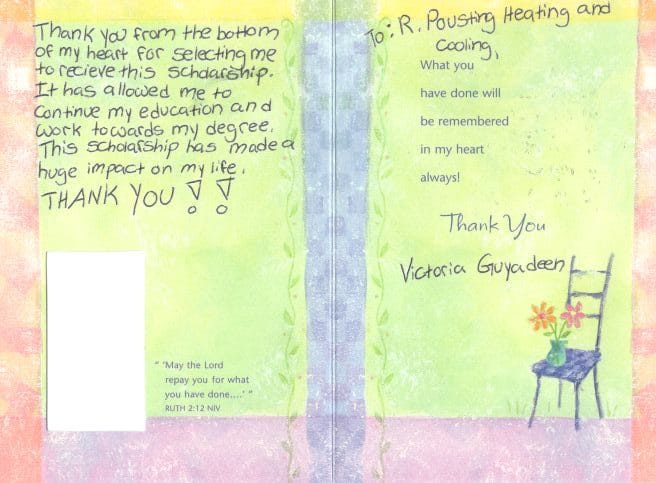 Thank you from the bottom
of my heart for selecting me
to recieve this scholarship.
It has allowed me to
continue my education and
work towards my degree.
This scholarship has made a
huge impact on my life.
THANK YOU !!
" 'May the Lord
repay you for what
you have done....' "
RUTH 2:12 NIV
To: R. Pousting Heating and
Cooling,
What you
have done will
be remembered
in my heart
always!
Thank You
Victoria Guyadeen